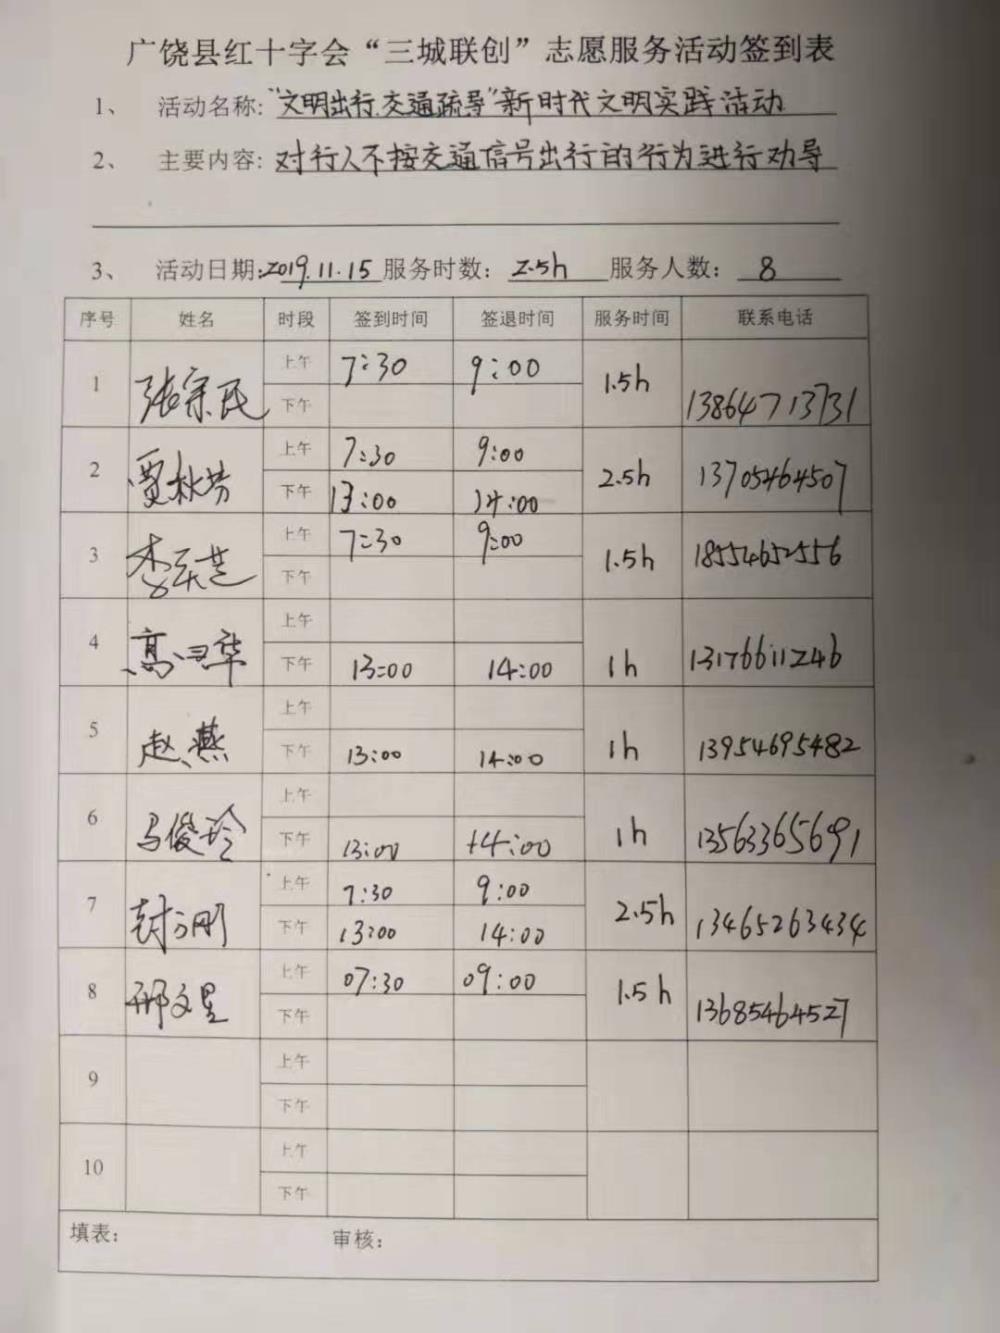 广饶县红十字会“三城联创”志愿服务活动签到表
1、 活动名称: “文明出行.交通疏导”新时代文明实践活动
2、 主要内容: 对行人不按交通信号出行的行为进行劝导
3、 活动日期: 2019.11.15 服务时数: 2.5h 服务人数: 8
序号 姓名 时段 签到时间 签退时间 服务时间 联系电话
1 张宗民 上午 7:30 9:00 1.5h 13864713731
下午
2 贾秋芳 上午 7:30 9:00 2.5h 13705464507
下午 13:00 14:00
3 李 上午 7:30 9:00 1.5h 18554652556
下午
4 高 华 上午
下午 13:00 14:00 1h 13176611246
5 赵燕 上午
下午 13:00 14:00 1h 13954695482
6 马俊玲 上午
下午 13:00 14:00 1h 13563365691
7 封刚 上午 7:30 9:00 2.5h 13465263434
下午 13:00 14:00
8 邢文星 上午 07:30 09:00 1.5h 13685464527
下午
9 上午
下午
10 上午
下午
填表: 审核: